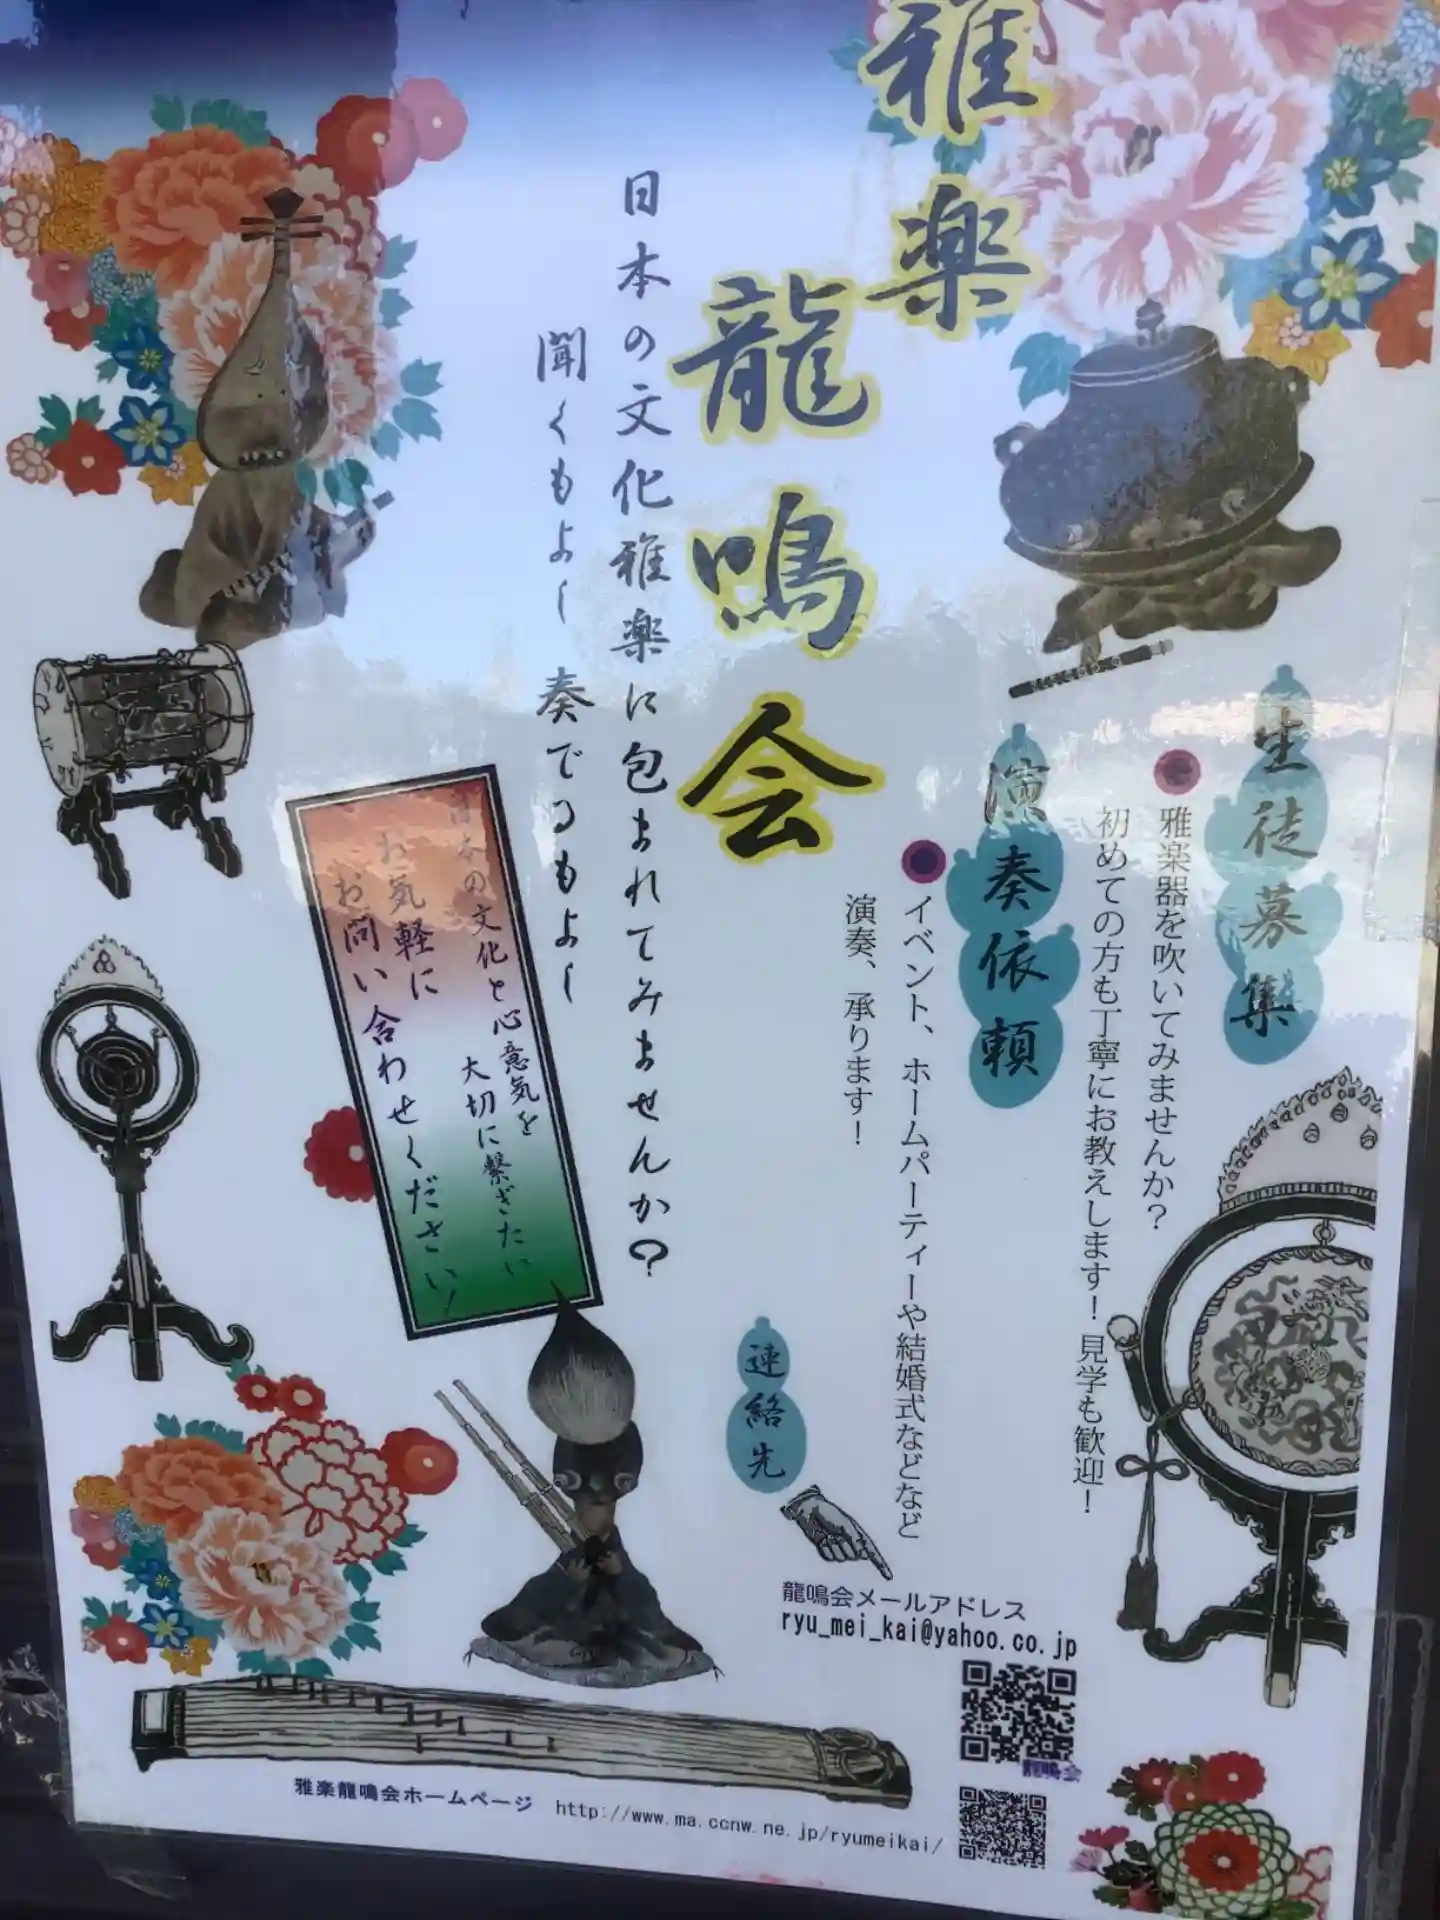 雅楽
龍鳴会
生徒募集
雅楽器を吹いてみませんか？
初めての方も丁寧にお教えします！見学も歓迎！
演奏依頼
イベント、ホームパーティーや結婚式などなど
演奏、承ります！
日本の文化雅楽に包まれてみませんか？
聞くもよし 奏でるもよし
日本の文化と心意気を
大切に繋ぎたい
お気軽に
お問い合わせください！
連絡先
龍鳴会メールアドレス
ryu_mei_kai@yahoo.co.jp
龍鳴会
雅楽龍鳴会ホームページ http://www.ma.ccnw.ne.jp/ryumeikai/